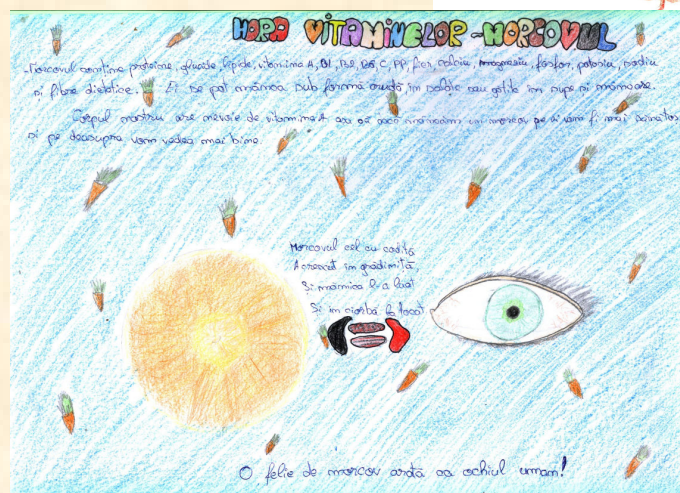 HORA VITAMINELOR - MORCOVUL
-Morcovul conține proteine, glucide, lipide, vitamina A, B1, B2, B6, C, PP, fier, calciu, magneziu, fosfor, potasiu, sodiu
și fibre dietetice. Ei se pot mânca sub formă crudă, în salate sau gătite în supe și mâncare.
Corpul nostru are nevoie de vitamina A așa că dacă mâncăm un morcov pe zi vom fi mai sănătoși
și pe deasupra vom vedea mai bine.
Morcovul cel cu codiță
A crescut în grădiniță,
Și mămica l-a luat
Și în ciorbă l-a tocat
O felie de morcov arată ca ochiul uman!